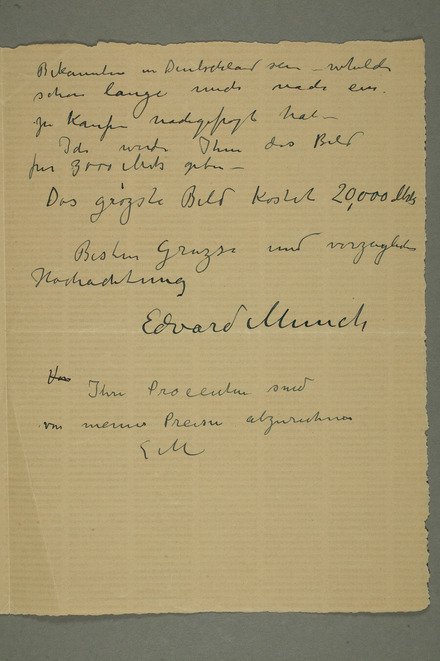 Bekannten in Deutschland sein – welche
schon lange mich nach ein
zu Kaufen nachgefragt hat –
Ich werde Ihm das Bild
für 3000 Mk geben –
Das grözste Bild kostet 20,000 Mk
Besten Gruzse und vorzuglichen
Hochachtung
Edvard Munch
Ihre Procenten sind
von meine Preisen abzurechnen
E M